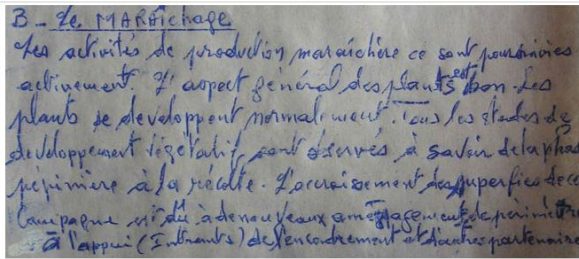 B - Le MARAÎCHAGE
Les activités de production maraichère ce sont poursuivies
activement. L'aspect général des plants est bon. Les
plants se developpent normalement. Tous les stades de
developpement végétatif sont observés à savoir de la phase
pépinière à la récolte. L'accroissement des superficies de ce
Campagne est dû à de nouveaux aménagements de périmètre
à l'appui (Intrants) de l'encadrement et d'autres partenaire